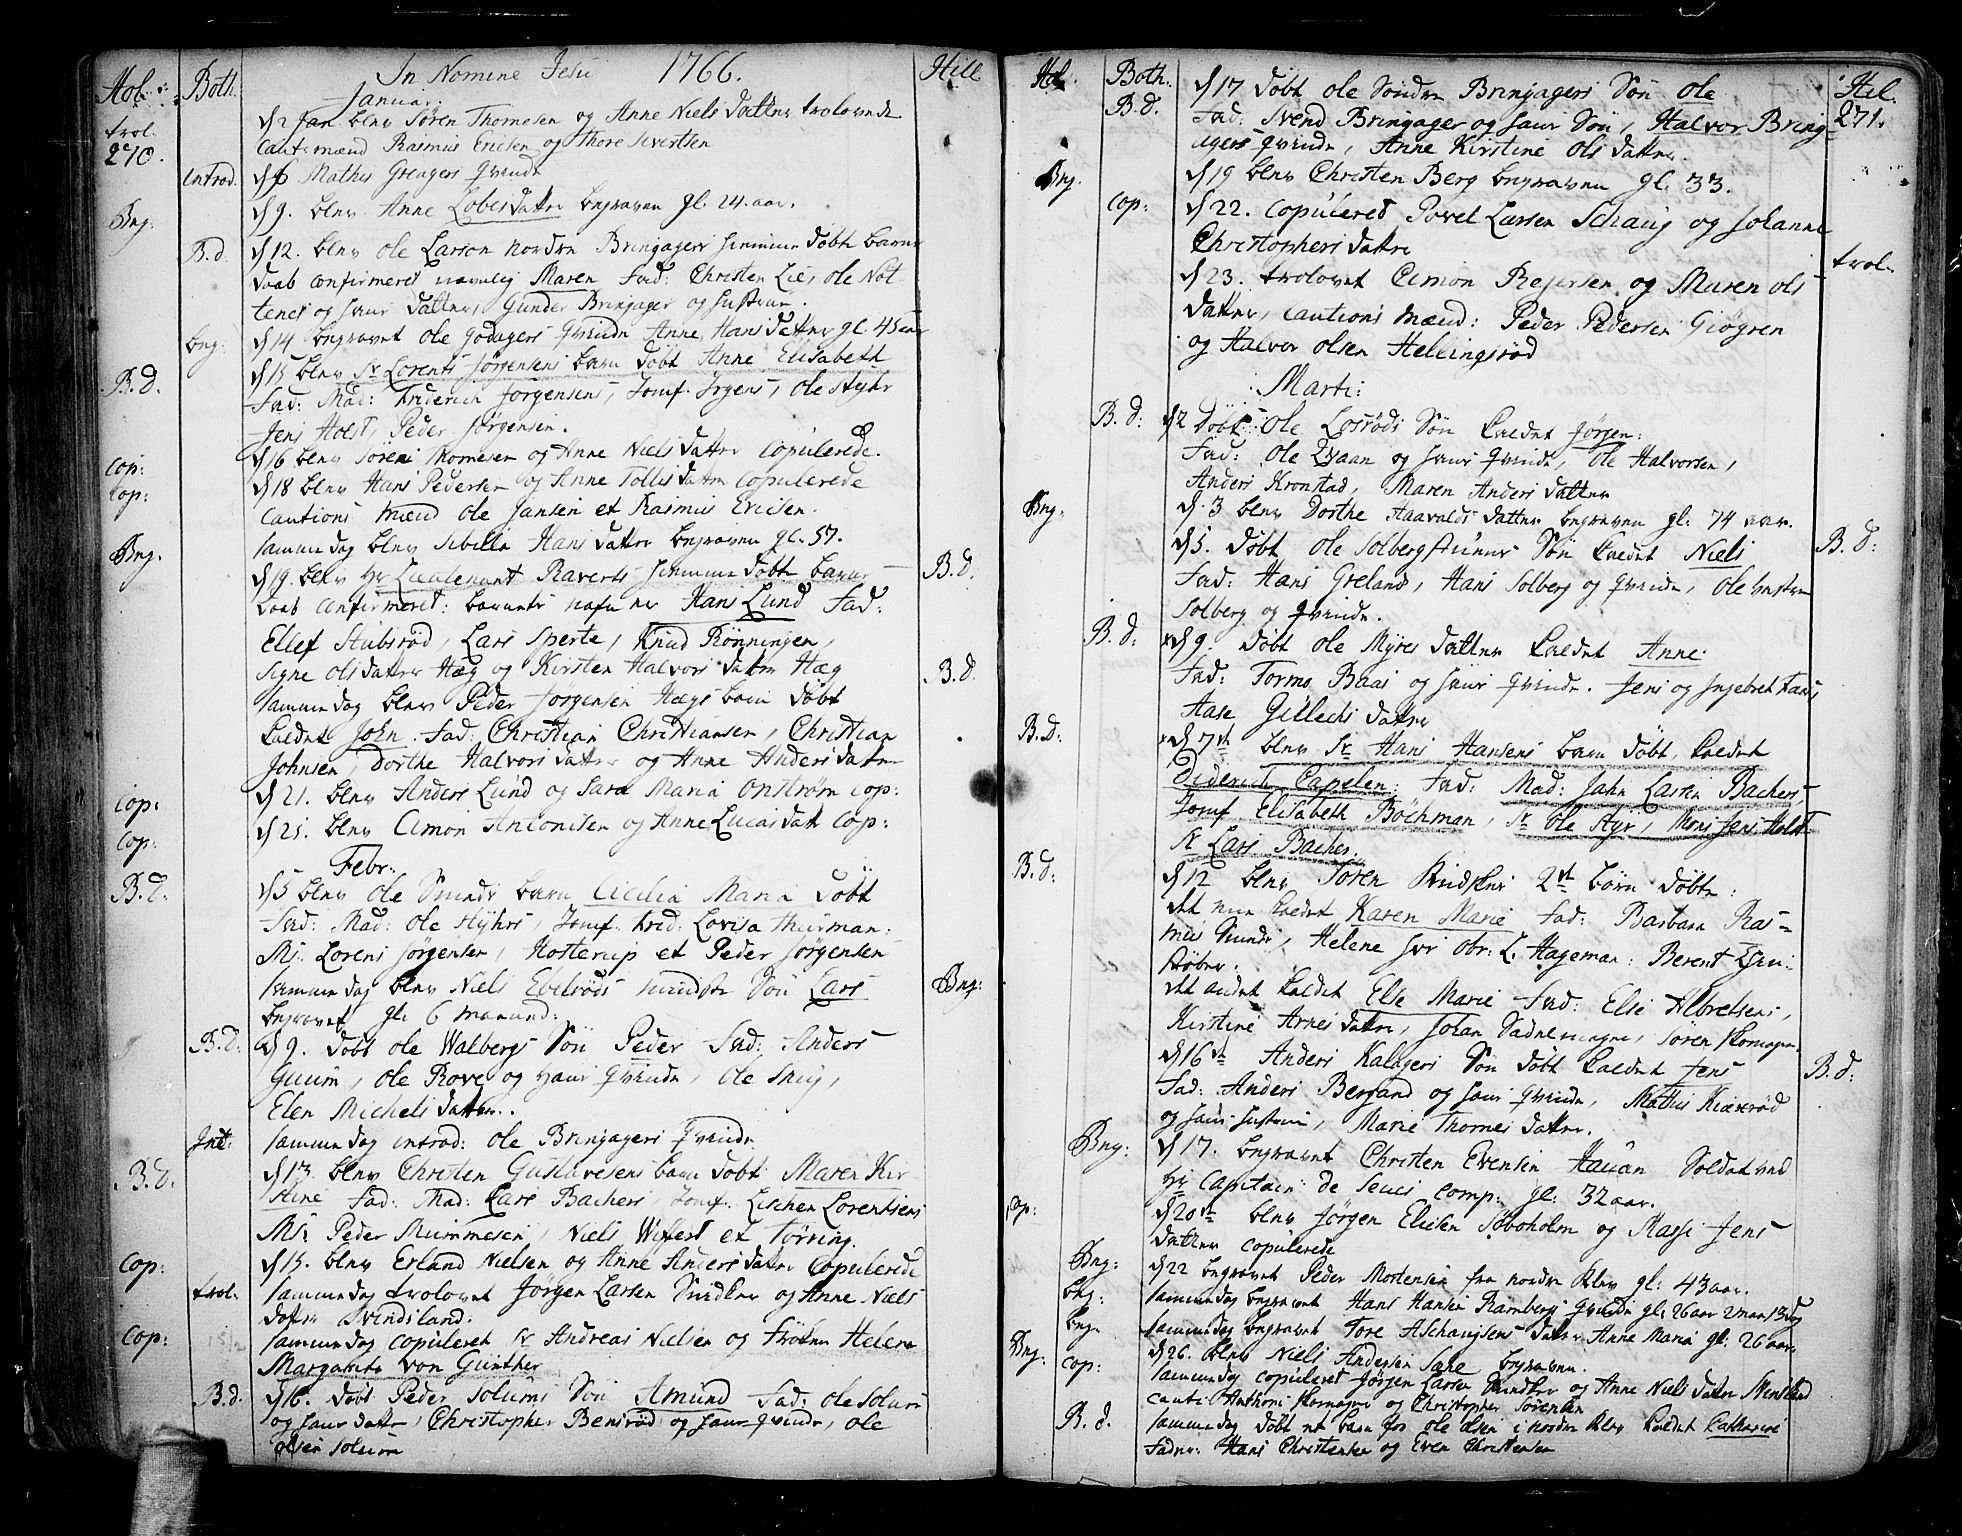 Hol: Both. In Nomine Jesu 1766. Hill
Januar:
trol. d 2 Jan. blev Sören Thomesen og Anne Niels datter trolovede
270. Cant: mænd Rasmus Ericsen og Thore Sivertsen
introd. d 6 Mathis Grengers Qvinde
Beg: d 9. blev Anne Lobes datter begraven gl. 24 aar.
B.d. d 12. blev Ole Larson nordre Bringagers hiemme döbte barns
daab confirmeret navnlig Maren Fad: Christen Lie, Ole Not
tenes og hans datter, Gunder Bringager og hustrue.
beg: d 14 begravet Ole Godagers Qvinde Anne Hans datter gl. 45 aar
B.d. d 15 blev Sr Lorents Jörgensens barn döbt Anne Elisabeth
Fad: Mad: Friderich Jorgensens, Jomf. Jrgens, Ole Styhr
Jens Holst, Peder Jörgensen.
Cop: d 16 blev Sören Thomesen og Anne Niels datter Copulerede.
Cop: d 18 blev Hans Pedersen og Anne Tollis datter Copulerede
Cautions mænd Ole Jansen et Rasmus Ericsen.
Beg. samme dag blev Sibilla Hans datter begraven gl. 57.
d 19. blev Hr Lieutenant Raverts hiemme döbte barns B.d.
daab confirmeret: barnets nafn er Hans Lund Fad:
Ellef Stubsröd, Lars Sperte, Knud Rönningen,
Signe Ols datter Hæg og Kirsten Halvors datter Hæg
samme dag blev Peder Jorgensen Hægs barn döbt B.d.
kaldet John. Fad: Christian Christiansen, Christian
Johnsen, Dorthe Halvors datter og Anne Anders datter
Cop: d 21. blev Anders Lund og Sara Maria Onström Cop:
Cop: d 25. blev Cimon Antonisen og Anne Lucas datt Cop:
Febr:
B.d. d 5 blev Ole Smeds barn Cicilia Maria döbt
Fad: Mad: Ole Styhrs, Jomf. Frid: Lovisa Thurman:
Ms. Lorens Jörgensen, Hosterup et Peder Jörgensen
samme dag blev Niels Evelröds mindste Sön Lars Beg:
begravet gl. 6 maaned:
B.d. d 9. döbt Ole Walbergs Sön Peder Fad: Anders
Guum, Ole Rove og hans Qvinde, Ole Skug,
Elen Michels datter.
Int: samme dag introd: Ole Bringagers Qvinde
B.d. d 13. blev Christen Gustavesens barn döbt Maren Kir
stine Fad: Mad: Lars Bachers, Jomf. Lischen Lorentsens
Ms: Peder Mummesen, Niels Wifert et Törring.
Cop: d 15. blev Erland Nielsen og Anne Anders datter Copulerede
trol. samme dag trolovet Jörgen Larsen Smidler og Anne Niels
datter Svendsland.
Cop: samme dag copuleret Sr Andreas Nielsen og Fröken Helene
Margareta von Günther
B.d. d 16. döbt Peder Solums Sön Amund Fad: Ole Solum
og hans datter, Christopher Bensröd og hans Qvinde, Ole
Olsen Solum
Hol. Both. Hil.
B.d. d 17 döbt Ole Söndre Bringagers Sön Ole 271.
Fad: Svend Bringager og hans Sön, Halvor Bring-
agers Qvinde, Anne Kirstine Ols datter.
Beg. d 19 blev Christen Berg begraven gl. 33.
Cop: d 22. Copuleret Povel Larsen Schaug og Johanne
Christophers datter
d 23. trolovet Cimon Rejersen og Maren Ols trol.
datter, Cautions mænd: Peder Pedersen Giögren
og Halvor Olsen Hellingsröd
Marti:
B.d: d 2 Döbt Ole Losröds Sön kaldet Jörgen:
Fad: Ole Waan og hans Qvinde, Ole Halvorsen,
Anders Kronstad, Maren Anders datter
Beg. d. 3 blev Dorthe Haavalds datter begraven gl: 74 aar.
d 5. döbt Ole Solbergstuens Sön kaldet Niels B.d:
Fad: Hans Greland, Hans Solberg og Qvinde, Ole Vestre
Solberg og Qvinde.
B.d: d 9. döbt Ole Myres datter kaldet Anne
Fad: Tormo Baas og hans Qvinde. Jens og Ingebret Fans,
Aase Gillechs datter
B.d: d 7de blev Sr Hans Hansens barn döbt kaldet
Diderich Capelen: Fad: Mad: Jahn Larsen Bachers,
Jomf Elisabeth Böchman, Sr Ole Styr, Mons. Jens Holst
Sr Lars Bacher.
B.d: d 12 blev Sören 2de börn döbte:
det ene kaldet Karen Marie Fad: Barbara Ras-
mus Smeds, Helene hos obr: L. Hageman: Berent
stöber.
det andet kaldet Else Marie Fad: Else Albretsens,
Kirstine Arnes datter, Johan Sadnemagre, Sören Skomager
d 16de Anders Kalagers Sön döbt kaldet Jens B.d:
Fad: Anders Bergand og hans Qvinde, Mathis Kiærröd
og hans hustrue, Marie Thomes datter.
Beg: d 17. begravet Christen Evensen Hauan Soldat ved
Hr Capitain de Seues Comp: gl: 32 aar.
Cop: d 20de blev Jörgen Elisen Söboholm og Masse Jens
datter copulerede
Beg: d 22 begravet Peder Mortensen fra nordre Klev gl: 43 aar.
beg: samme dag begravet Hans Hansen Rambergs Qvinde gl: 26 aar 2 maan 13 dag
beg. samme dag begravet Tore Aschaugsens datter Anne Maria gl: 26 aar.
Beg: d 26. blev Niels Andersen Sane begraven.
Cop: samme dag copuleret Jörgen Larsen Smidler og Anne Niels datter Svensland
Cauti: Anthoni Skomager og Christopher Sörensen
B.d. samme dag döbt et barn for Ole Olsen i nordre Klev kaldet Cathasine
Fadere: Hans Christensen og Even Christensen